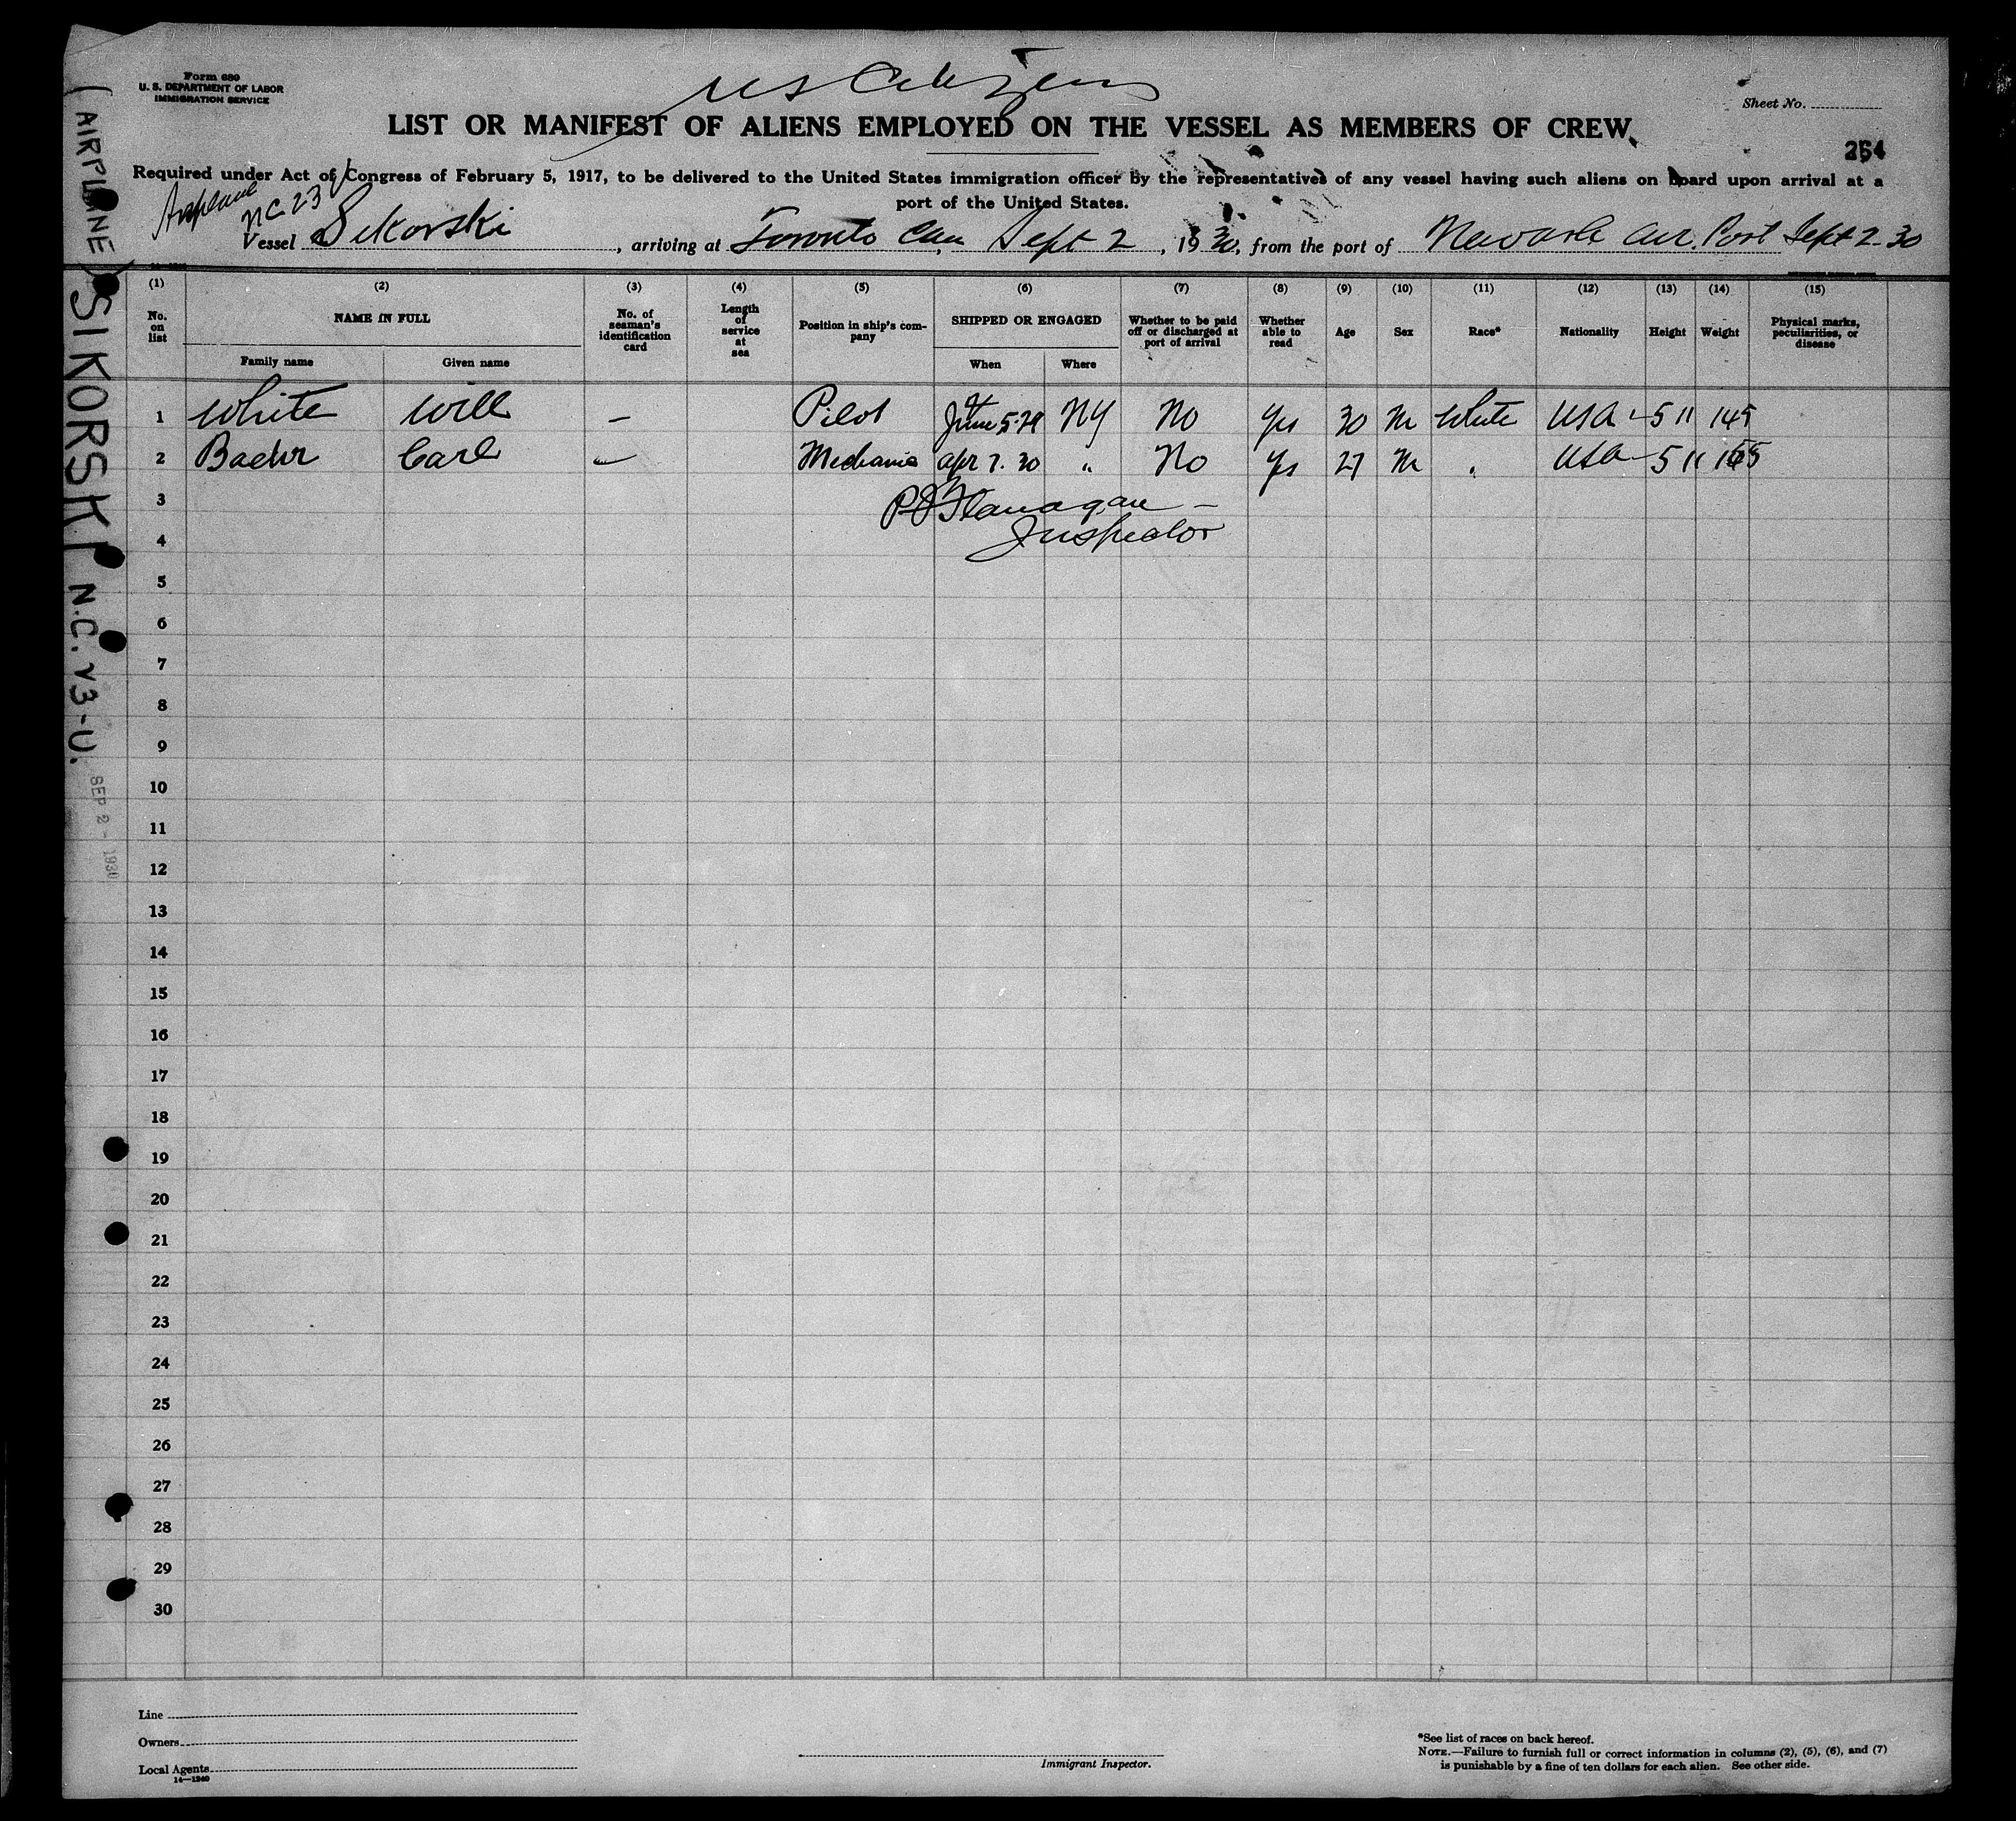 Form 680
U. S. DEPARTMENT OF LABOR
IMMIGRATION SERVICE
US Citizens
Sheet No.
LIST OR MANIFEST OF ALIENS EMPLOYED ON THE VESSEL AS MEMBERS OF CREW
254
Required under Act of Congress of February 5, 1917, to be delivered to the United States immigration officer by the representatives of any vessel having such aliens on board upon arrival at a
port of the United States.
Airplane
NC 23 V
Vessel Sikorski, arriving at Toronto Can, Sept 2, 1930, from the port of Newark Air. Port Sept 2-30
(1) (2) (3) (4) (5) (6) (7) (8) (9) (10) (11) (12) (13) (14) (15)
No. on list NAME IN FULL Family name Given name No. of seaman's identification card Length of service at sea Position in ship's company SHIPPED OR ENGAGED When Where Whether to be paid off or discharged at port of arrival Whether able to read Age Sex Race* Nationality Height Weight Physical marks, peculiarities, or disease
1 White Will — Pilot June 5-29 NY No Yes 30 M White USA - 5 11 145
2 Baehr Carl — Mechanic Apr 7. 30 " No Yes 27 M " USA - 5 11 155
3
PJ Flanagan —
4
Inspector
5
6
7
8
9
10
11
12
13
14
15
16
17
18
19
20
21
22
23
24
25
26
27
28
29
30
Line
Owners
Local Agents
14—1240
Immigrant Inspector.
*See list of races on back hereof.
NOTE.—Failure to furnish full or correct information in columns (2), (5), (6), and (7)
is punishable by a fine of ten dollars for each alien. See other side.
(AIRPLANE) SIKORSKI N.C. 23-U.
SEP 2 - 1930